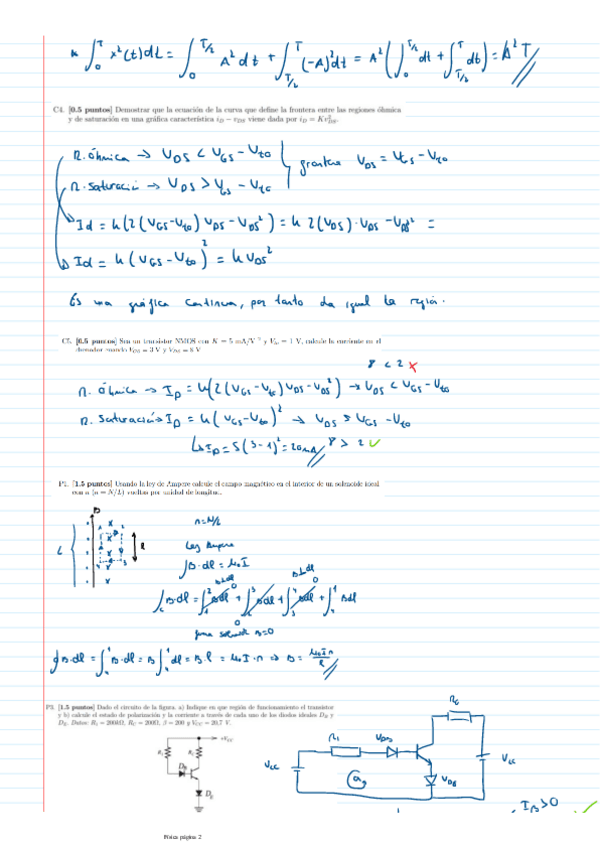 * ∫₀ᵀ x²(t)dt = ∫₀^{T/2} A² dt + ∫_{T/2}^T (-A)² dt = A² (∫₀^{T/2} dt + ∫_{T/2}^T dt) = A² T //
C4. [0.5 puntos] Demostrar que la ecuación de la curva que define la frontera entre las regiones óhmica
y de saturación en una gráfica característica i_D − v_DS viene dada por i_D = Kv²_DS.
R. óhmica → V_DS < V_GS − V_to
frontera V_DS = V_GS − V_to
R. saturación → V_DS > V_GS − V_to
↳ Id = k (2 (V_GS−V_to) V_DS − V_DS²) = k 2(V_DS)·V_DS − V_DS² =
↳ Id = k (V_GS − V_to)² = k V_DS²
Es una gráfica continua, por tanto da igual la región.
C5. [0.5 puntos] Sea un transistor NMOS con K = 5 mA/V⁻² y V_to = 1 V, calcule la corriente en el
drenador cuando V_GS = 3 V y V_DS = 8 V
8 < 2 ✗
R. Óhmica → I_D = k(2(V_GS − V_to) V_DS − V_DS²) → V_DS < V_GS − V_to
R. Saturación → I_D = k (V_GS − V_to)² → V_DS > V_GS − V_to
↳ I_D = 5 (3 − 1)² = 20mA // 8 > 2 ✓
P1. [1.5 puntos] Usando la ley de Ampere calcule el campo magnético en el interior de un solenoide ideal
con n (n = N/L) vueltas por unidad de longitud.
B
n = N/L
L
l
Ley Ampere
∫B·dl = μ₀ I
B⊥dl
B⊥dl
∫B·dl = ∫₁² Bdl + ∫₂³ Bdl + ∫₃⁴ Bdl + ∫₄¹ Bdl
0
0
0
B=0
∮B·dl = ∫₄¹ B·dl = B ∫₄¹ dl = B·l = μ₀ I·n ⇒ B = μ₀ I n / l //
P2. [1.5 puntos] Dado el circuito de la figura. a) Indique en que región de funcionamiento el transistor
y b) calcule el estado de polarización y la corriente a través de cada uno de los diodos ideales D_B y
D_E. Datos: R₁ = 200kΩ, R_C = 200Ω, β = 200 y V_CC = 20,7 V.
+V_CC
R₁
R_C
D_B
D_E
R_C
R₁
V_DB
V_CC
V_CC
V_DE
I_B > 0 ✓
Física página 2